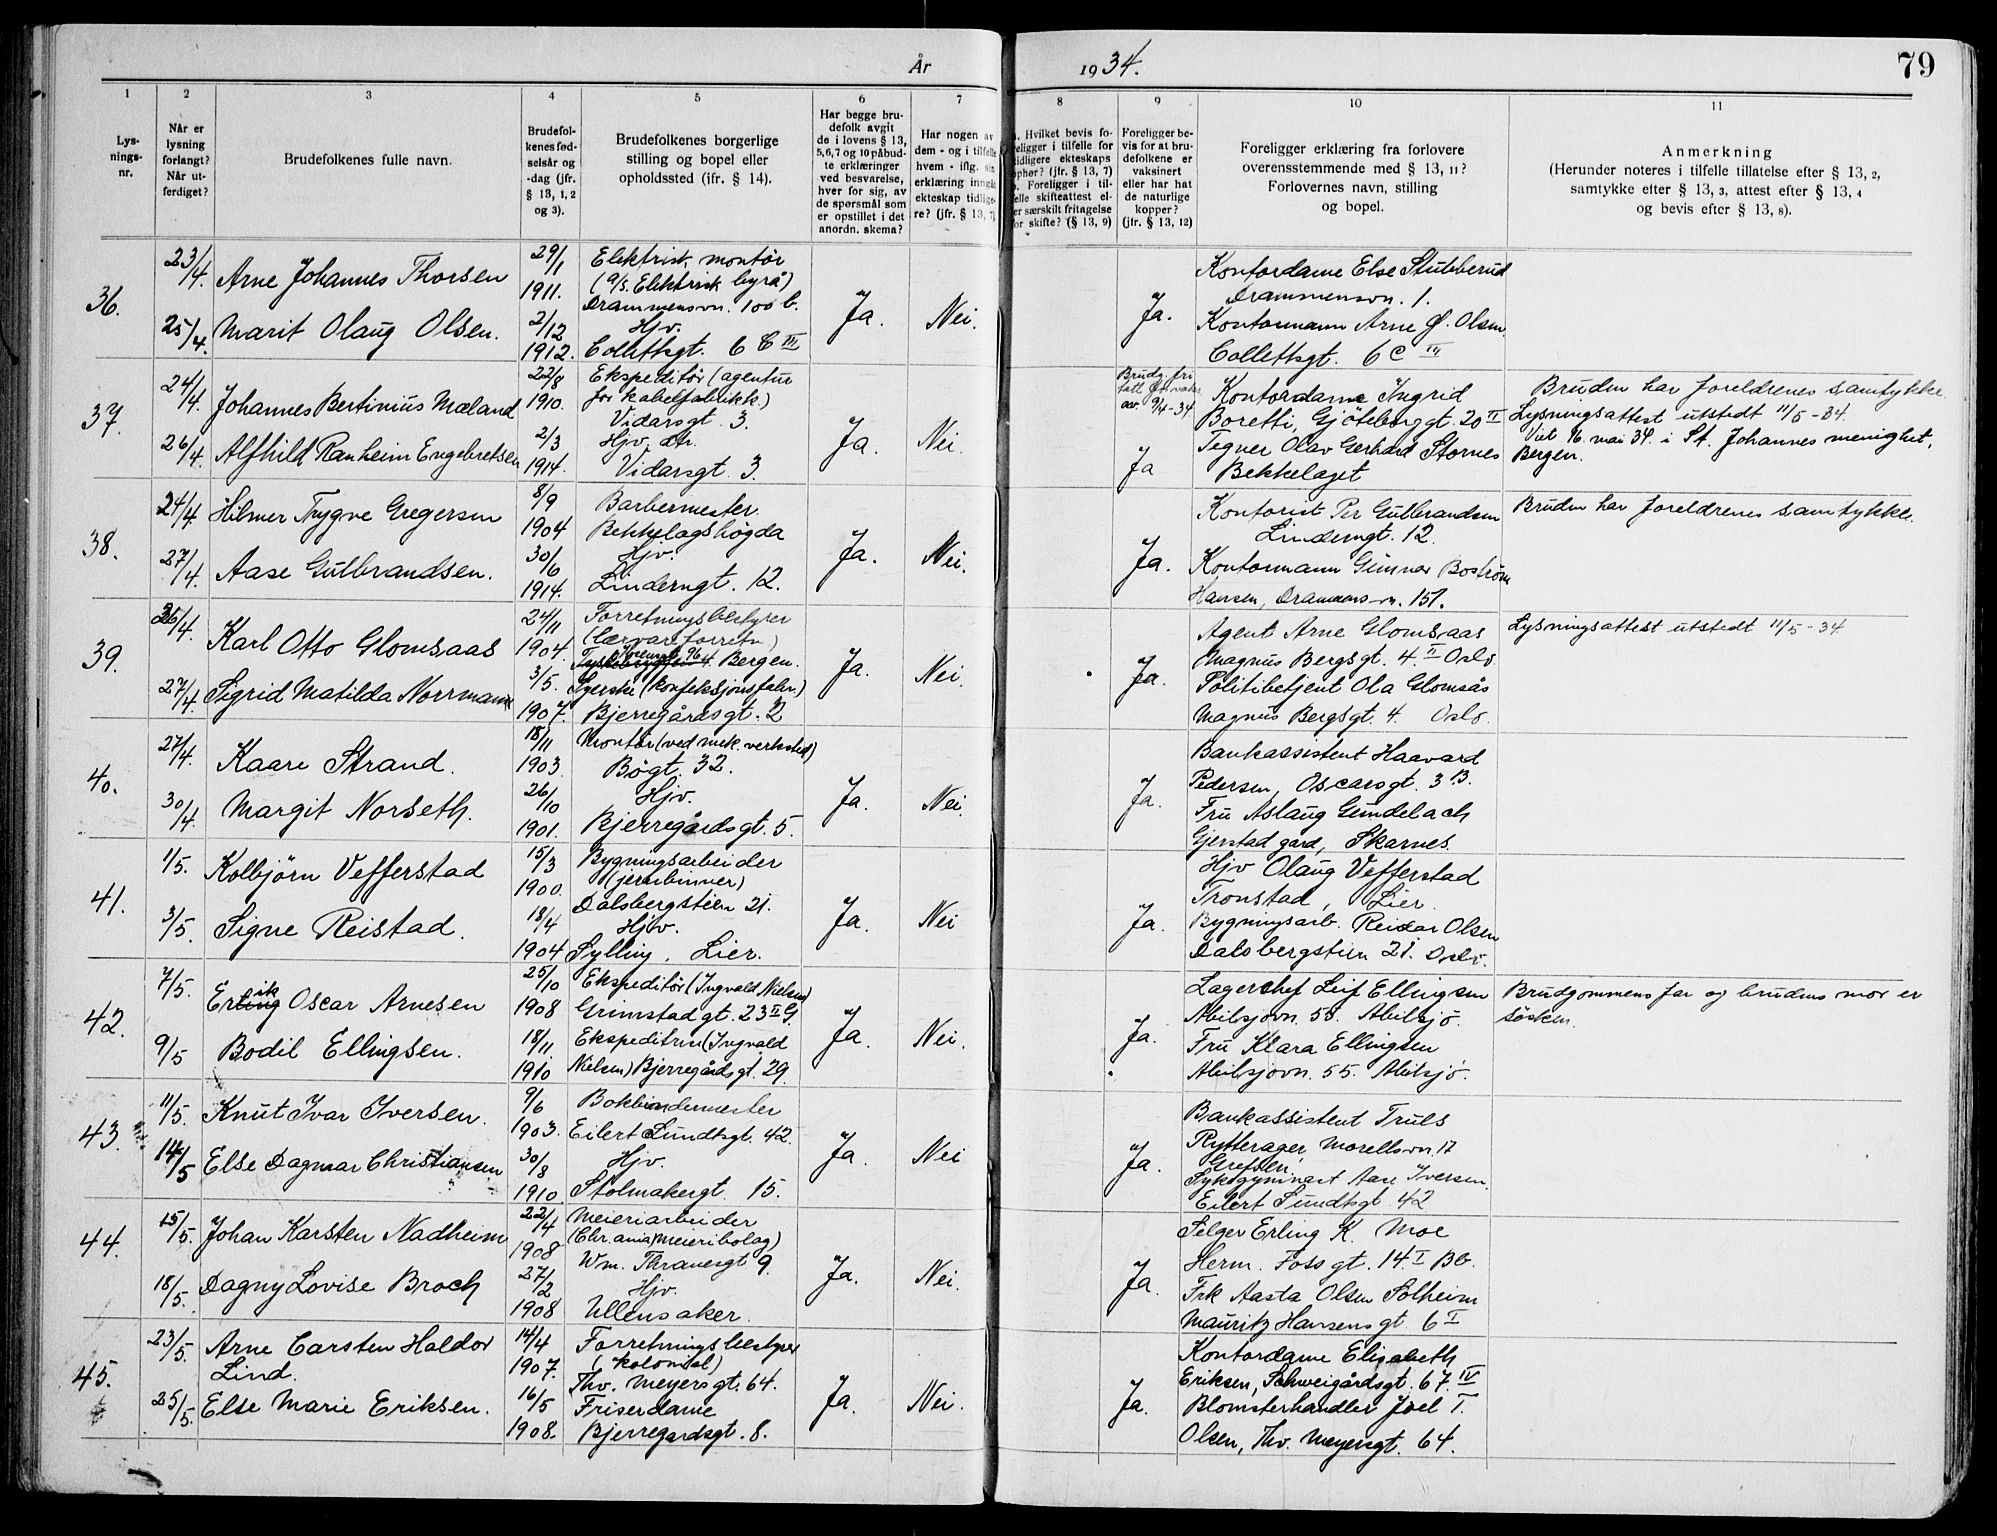 År 1934. 79
1 2 3 4 5 6 7 8 9 10 11
Lys-
nings-
nr.
Når er
lysning
forlangt?
Når ut-
ferdiget?
Brudefolkenes fulle navn.
Brudefol-
kenes fød-
selsår og
-dag (jfr.
§ 13, 1, 2
og 3).
Brudefolkenes borgerlige
stilling og bopel eller
opholdssted (jfr. § 14).
Har begge bru-
defolk avgit
de i lovens § 13,
5, 6, 7 og 10 påbud-
te erklæringer
ved besvarelse,
hver for sig, av
de spørsmål som
er opstillet i det
anordn. skema?
Har nogen av
dem - og i tilfelle
hvem - iflg. sin
erklæring inngått
ekteskap tidlige-
re? (jfr. § 13, 7)
a. Hvilket bevis fo-
religger i tilfelle for
tidligere ekteskaps
ophør? (jfr. § 13, 7)
b. Foreligger i til-
felle skifteattest el-
ler særskilt fritagelse
for skifte? (§ 13, 9)
Foreligger be-
vis for at bru-
defolkene er
vaksinert
eller har hat
de naturlige
kopper?
(jfr. § 13, 12)
Foreligger erklæring fra forlovere
overensstemmende med § 13, 11?
Forlovernes navn, stilling
og bopel.
Anmerkning
(Herunder noteres i tilfelle tillatelse efter § 13, 2,
samtykke efter § 13, 3, attest efter § 13, 4
og bevis efter § 13, 8).
36.
23/4.
25/4.
Arne Johannes Thorsen
Marit Olaug Olsen.
29/1
1911.
2/12
1912.
Elektrisk montör
(a/s. Elektrisk byrå)
Drammensvn. 100 b.
Hjv.
Collettsgt. 6 C III
Ja.
Nei.
Ja.
Kontordame Else Stubberud
Drammensvn. 1.
Kontormann Arne Ø. Olsen,
Collettsgt. 6 C III
37.
24/4.
26/4.
Johannes Bertinius Mæland
Alfhild Ranheim Engebretsen
22/8
1910.
2/3
1914.
Ekspeditör (agentur
for kabelfabrikk.)
Vidarsgt. 3.
Hjv. dtr.
Vidarsgt. 3.
Ja.
Nei.
Brudg. fri
9/4-34
Ja
Kontordame Ingrid
Boretti, Gjöteborggt. 20 II
Tegner Olav Gerhard Stornes
Bekkelaget
Bruden har foreldrenes samtykke.
Lysningsattest utstedt 11/5-34.
Viet 16. mai 34. i St. Johannes menighet,
Bergen.
38.
24/4.
27/4.
Hilmer Trygve Gregersen
Aase Gulbrandsen.
8/9
1904
30/6
1914.
Barbermester.
Bekkelagshögda
Hjv.
Linderngt. 12.
Ja.
Nei.
Ja.
Kontorist Per Gulbrandsen
Linderngt. 12.
Kontormann Gunnar Boström
Hansen, Drammensvn. 151.
Bruden har foreldrenes samtykke.
39.
26/4.
27/4.
Karl Otto Glomsaas
Sigrid Matilda Norrmann
24/11
1904.
3/5.
1907.
Forretningsbestyrer
(Lærvareforretn.)
Tyskebryggen 4. Bergen.
Syerske (konfeksjonsfabr.)
Bjerregårdsgt. 2
Ja.
Nei.
Ja.
Agent Arne Glomsaas
Magnus Bergsgt. 4. II Oslo.
Politibetjent Ola Glomsås
Magnus Bergsgt. 4. Oslo.
Lysningsattest utstedt 11/5-34.
40.
27/4.
30/4.
Kaare Strand.
Margit Norseth.
18/11
1903.
26/10
1901.
Montör (ved mek. verksted)
Bögt. 32.
Hjv.
Bjerregårdsgt. 5.
Ja.
Nei.
Ja.
Bankassistent Haavard
Pedersen, Oscarsgt. 3 B.
Fru Aslaug Gundelach
Gjerstad gård, Skarnes.
41.
1/5.
3/5.
Kolbjörn Vefferstad
Signe Reistad.
15/3
1900.
18/4
1904
Bygningsarbeider
(jernbinner)
Dalsbergstien 21.
Hjv.
Sylling, Lier.
Ja.
Nei
Ja.
Hjv Olaug Vefferstad
Tronstad, Lier.
Bygningsarb. Reidar Olsen
Dalsbergstien 21. Oslo.
42.
7/5.
9/5
Erlingik Oscar Arnesen
Bodil Ellingsen.
25/10
1908
18/11
1910
Ekspeditör (Ingvald Nielsen)
Grimstadgt. 23 II G.
Ekspeditrise (Ingvald
Nielsen) Bjerregårdsgt. 29.
Ja.
Nei.
Ja.
Lagerchef Leif Ellingsen
Abilsjövn. 55. Abilsjö.
Fru Klara Ellingsen
Abilsjövn. 55. Abilsjö.
Brudgommens far og brudens mor er
söskén.
43.
11/5.
14/5
Knut Ivar Iversen.
Else Dagmar Christiansen
9/6
1903.
30/8
1910.
Bokbindermester
Eilert Sundtsgt. 42.
Hjv.
Stolmakergt. 15.
Ja.
Nei
Ja.
Bankassistent Truls
Rytterager, Morellsvn. 17
Grefsen.
Sykegymnast Aase Iversen,
Eilert Sundtsgt. 42
44.
15/5.
18/5.
Johan Karsten Nadheim
Dagny Lovise Broch
22/4
1908
27/2
1908
Meieriarbeider
(Chr.ania Meieribolag)
Wm. Thranesgt 9.
Hjv.
Ullensaker.
Ja.
Nei.
Ja.
Selger Erling K. Moe
Herm. Fossgt. 14. I Bb.
Frk Aasta Olsen Solheim
Mauritz Hansensgt. 6 I
45.
23/5.
25/5.
Arne Carsten Haldor
Lind.
Else Marie Eriksen.
14/4
1907.
16/5
1908.
Forretningsbestyrer
(kolonial)
Thv. Meyersgt. 64.
Friserdame
Bjerregardsgt. 8.
Ja.
Nei.
Ja.
Kontordame Elisabeth
Eriksen, Schweigårdsgt. 67. IV
Blomsterhandler Joel T.
Olsen, Thv. Meyersgt. 64.